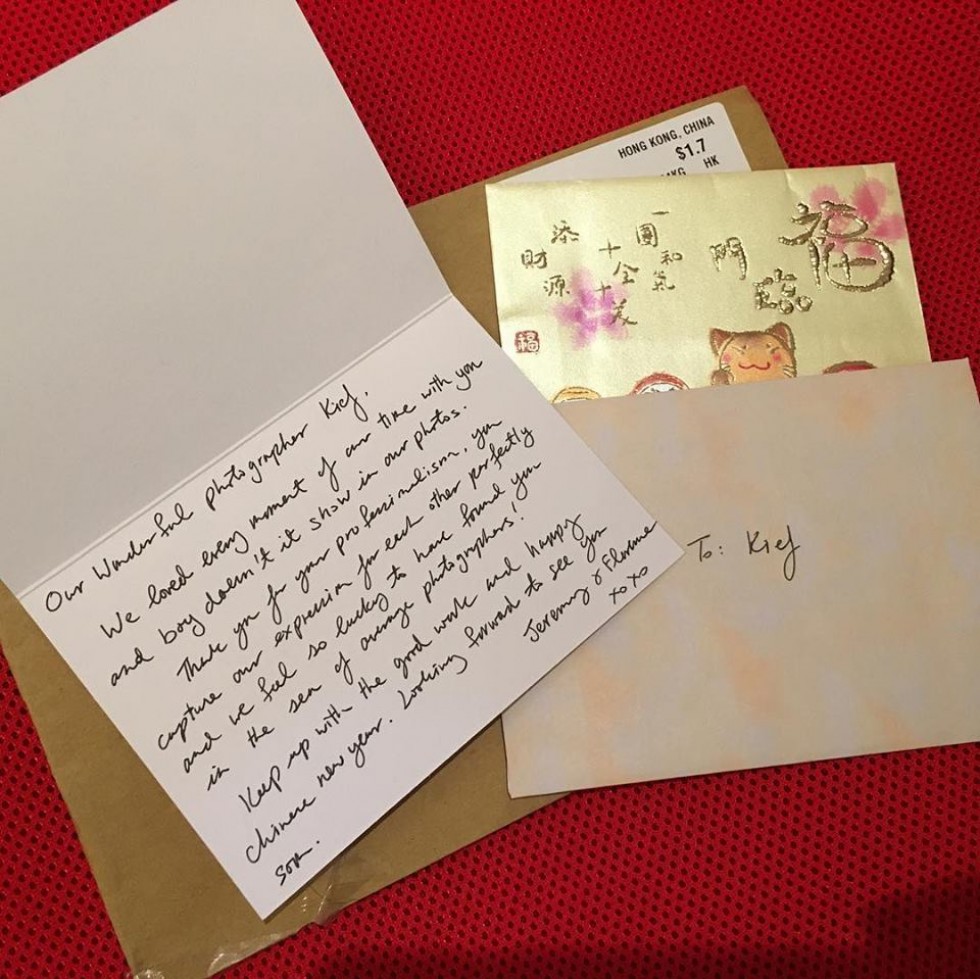 Our Wonderful photographer Kief,
We loved every moment of our time with you
and boy doesn't it show in our photos.
Thank you for your professionalism, you
capture our expression for each other perfectly
and we feel so lucky to have found you
in the sea of average photographers!
Keep up with the good work and happy
chinese new year. Looking forward to see you
soon.
Jeremy & Florence
xoxo
HONG KONG, CHINA
$1.7
HK
福臨門
一團和氣
十全十美
添財源
福
To: Kief